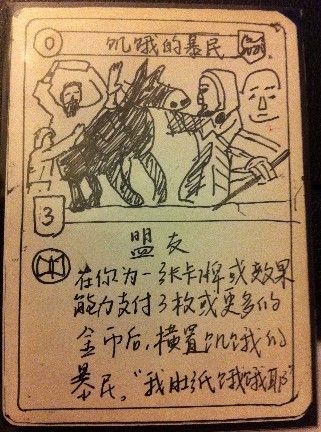 0 饥饿的暴民
3
盟友
在你为一张卡牌或效果
能力支付3枚或更多的
金币后，横置饥饿的
暴民。"我肚纸饿饿耶"